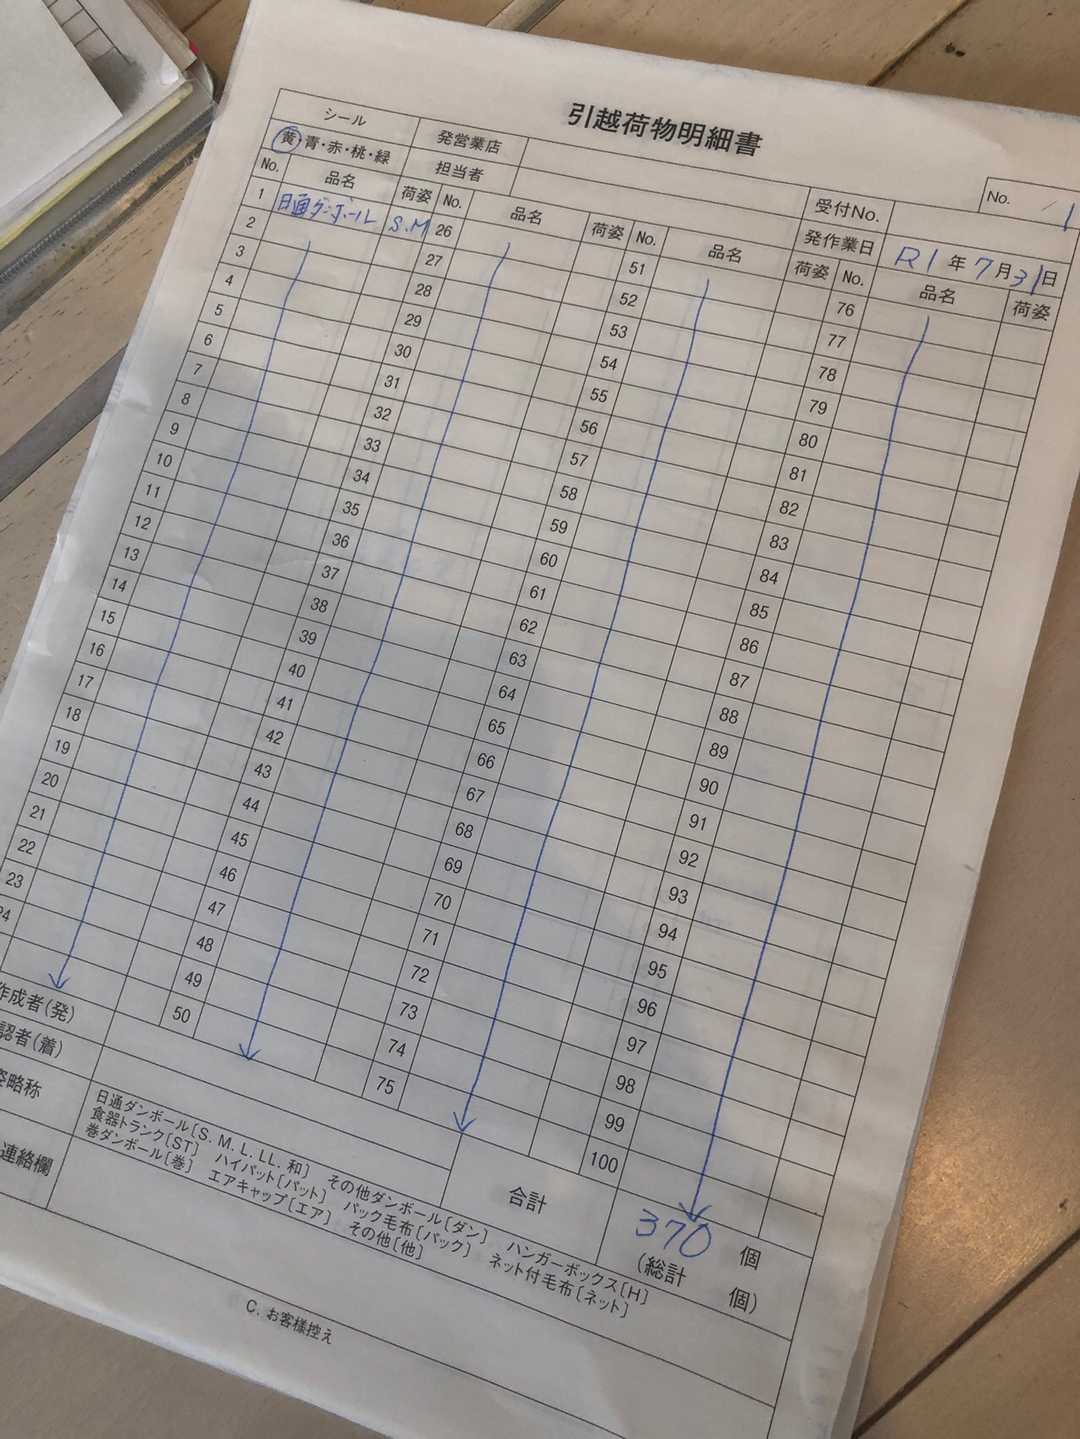 引越荷物明細書
シール
黄・青・赤・桃・緑
発営業店
担当者
受付No.
No. 1
発作業日 R1年7月31日
No. 品名 荷姿 No. 品名 荷姿 No. 品名 荷姿 No. 品名 荷姿
1 日通ダンボール S.M 26 51 76
2 27 52 77
3 28 53 78
4 29 54 79
5 30 55 80
6 31 56 81
7 32 57 82
8 33 58 83
9 34 59 84
10 35 60 85
11 36 61 86
12 37 62 87
13 38 63 88
14 39 64 89
15 40 65 90
16 41 66 91
17 42 67 92
18 43 68 93
19 44 69 94
20 45 70 95
21 46 71 96
22 47 72 97
23 48 73 98
24 49 74 99
50 75 100
作成者(発)
認者(着)
略称
日通ダンボール[S. M. L. LL. 和] その他ダンボール[ダン] ハンガーボックス[H]
食器トランク[ST] ハイパット[パット] パック毛布[パック] ネット付毛布[ネット]
巻ダンボール[巻] エアキャップ[エア] その他[他]
連絡欄
合計 370 個
(総計 個)
C. お客様控え